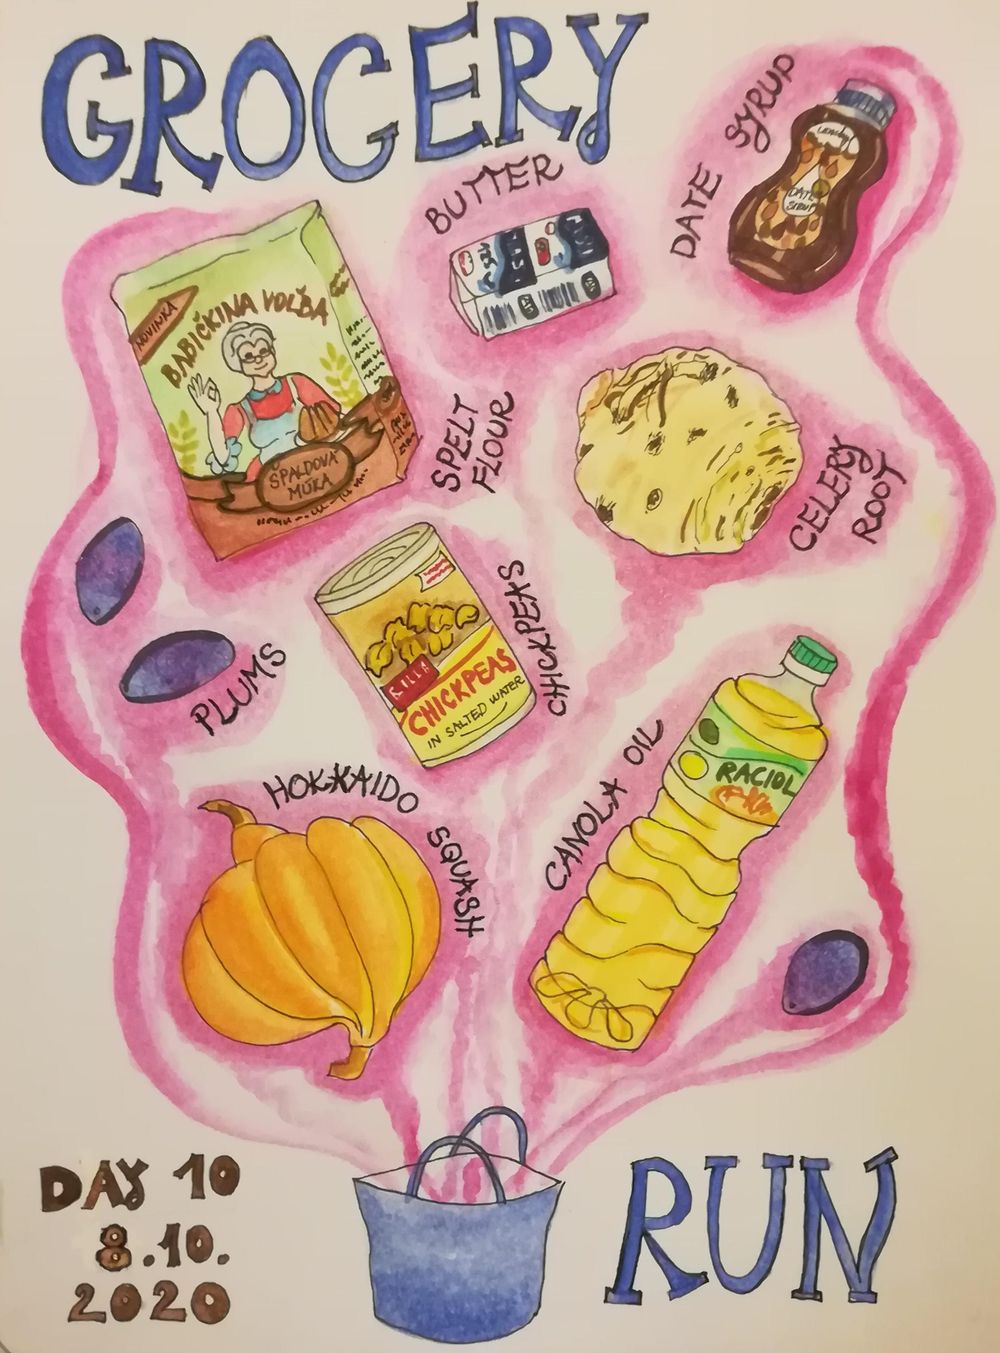 GROCERY
DATE SYRUP
BUTTER
DATE
SIRUP
NOVINKA
BABIČKINA VOĽBA
ŠPALDOVÁ
MÚKA
SPELT
FLOUR
CELERY
ROOT
PLUMS
CHICKPEAS
CHICKPEAS
IN SALTED WATER
HOKKAIDO
SQUASH
CANOLA OIL
RACIOL
DAY 10
8.10.
2020
RUN